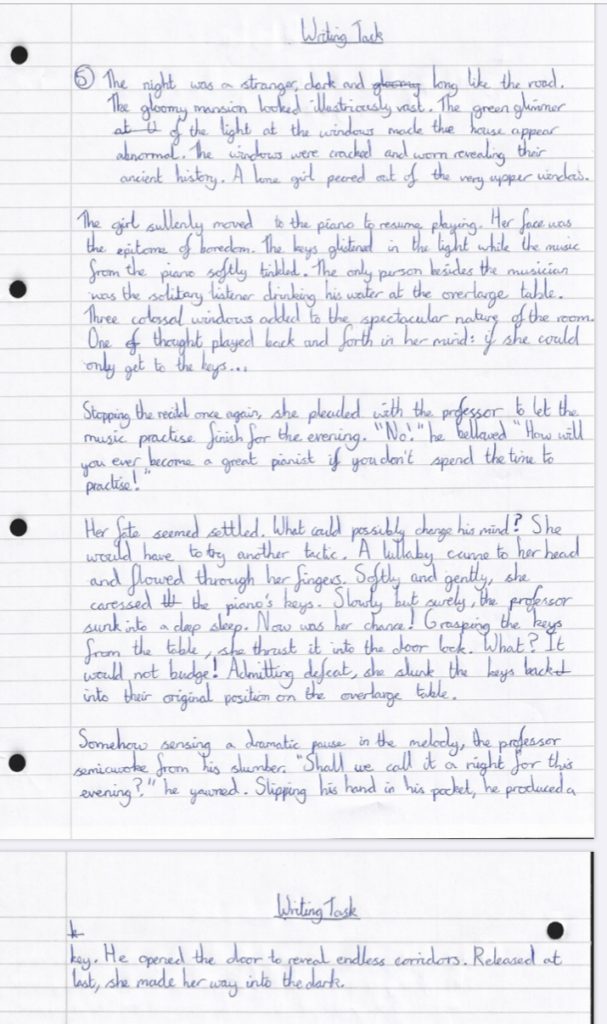 Writing Task
5 The night was a stranger, dark and gloomy long like the road.
The gloomy mansion looked illustriously vast. The green glimmer
at of the light at the windows made the house appear
abnormal. The windows were cracked and worn revealing their
ancient history. A lone girl peered out of the very upper windows.
The girl sullenly moved to the piano to resume playing. Her face was
the epitome of boredom. The keys glistened in the light while the music
from the piano softly tinkled. The only person besides the musician
was the solitary listener drinking his water at the overlarge table.
Three colossal windows added to the spectacular nature of the room.
One of thought played back and forth in her mind: if she could
only get to the keys...
Stopping the recital once again, she pleaded with the professor to let the
music practise finish for the evening. "No!" he bellowed "How will
you ever become a great pianist if you don't spend the time to
practise!"
Her fate seemed settled. What could possibly change his mind? She
would have to try another tactic. A lullaby came to her head
and flowed through her fingers. Softly and gently, she
caressed the piano's keys. Slowly but surely, the professor
sunk into a deep sleep. Now was her chance! Grasping the keys
from the table, she thrust it into the door lock. What? It
would not budge! Admitting defeat, she slunk the keys back
into their original position on the overlarge table.
Somehow sensing a dramatic pause in the melody, the professor
semicwoke from his slumber. "Shall we call it a night for this
evening?" he yawned. Slipping his hand in his pocket, he produced a
Writing Task
k
key. He opened the door to reveal endless corridors. Released at
last, she made her way into the dark.